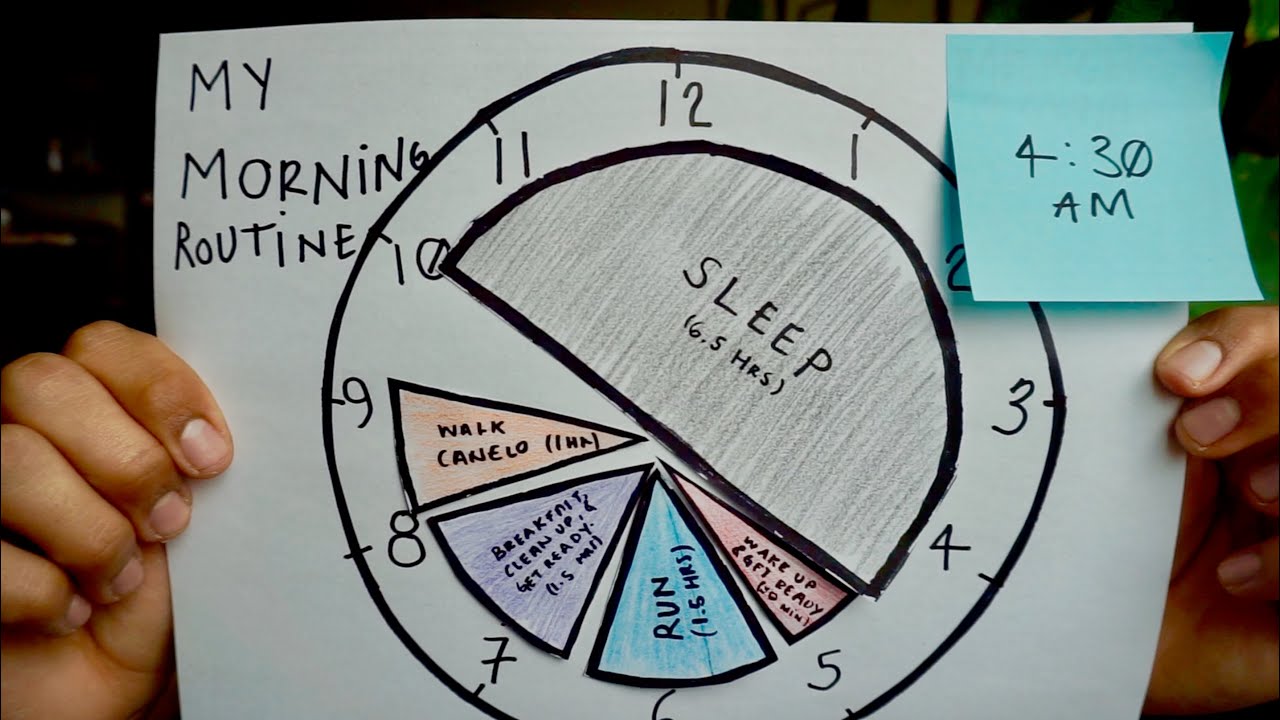 MY
MORNING
ROUTINE
4:30
AM
12
1
2
3
4
5
6
7
8
9
10
11
SLEEP
(6.5 HRS)
WAKE UP
& GET READY
RUN
(1.5 HRS)
BREAKFAST,
CLEAN UP, &
GET READY.
(1.5 HRS)
WALK
CANELO (1HR)